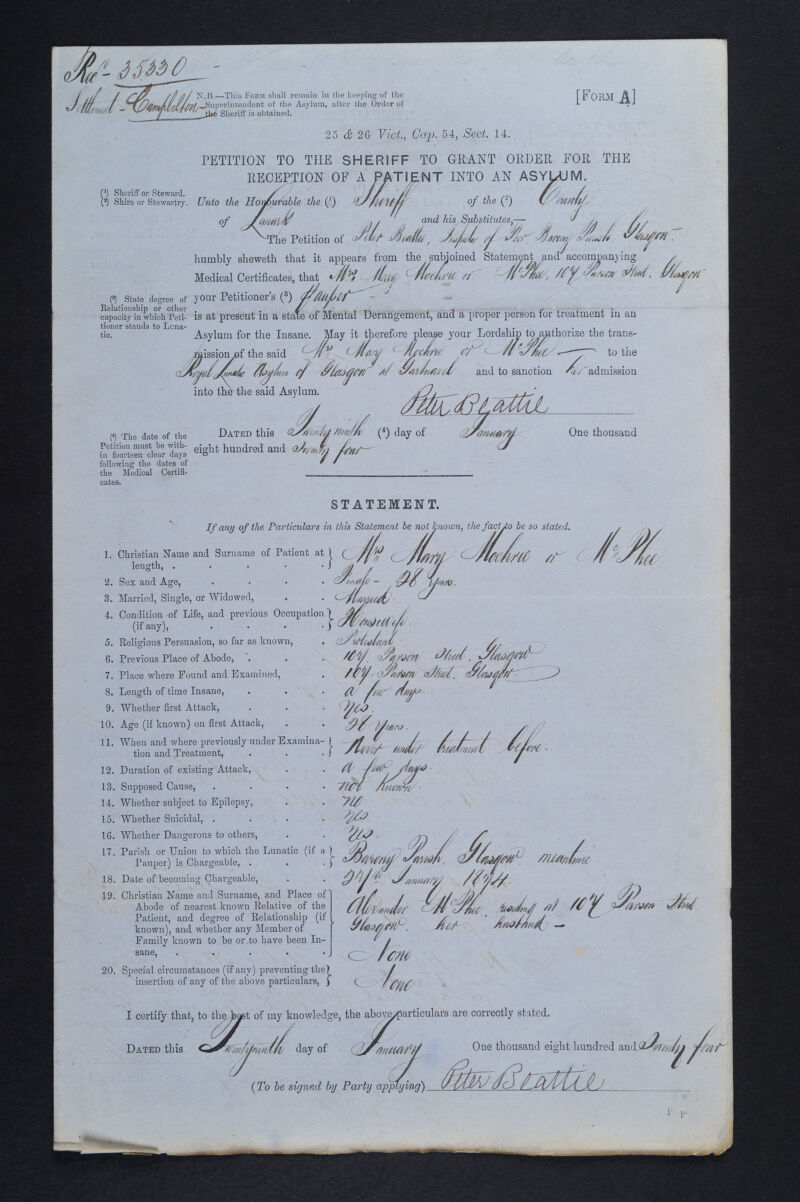 Recd - 35330 -
Settlement - Campbelton -
N.B.—This Form shall remain in the keeping of the
Superintendent of the Asylum, after the Order of
the Sheriff is obtained.
[Form A]
25 & 26 Vict., Cap. 54, Sect. 14.
PETITION TO THE SHERIFF TO GRANT ORDER FOR THE
RECEPTION OF A PATIENT INTO AN ASYLUM.
(¹) Sheriff or Steward.
(²) Shire or Stewartry.
Unto the Honourable the (¹) Sheriff of the (²) County
of Lanark and his Substitutes,—
The Petition of Peter Beattie, Inspector of Poor Barony Parish, Glasgow
humbly sheweth that it appears from the subjoined Statement and accompanying
Medical Certificates, that Mrs. Mary Mochrie or McPhee, 107 Parson Street, Glasgow
(³) State degree of
Relationship or other
capacity in which Peti-
tioner stands to Luna-
tic.
your Petitioner's (³) Pauper
is at present in a state of Mental Derangement, and a proper person for treatment in an
Asylum for the Insane. May it therefore please your Lordship to authorize the trans-
mission of the said Mrs Mary Mochrie or McPhee — to the
Royal Lunatic Asylum of Glasgow at Gartnavel and to sanction her admission
into the the said Asylum.
Peter Beattie
(⁴) The date of the
Petition must be with-
in fourteen clear days
following the dates of
the Medical Certifi-
cates.
Dated this Twenty ninth (⁴) day of January One thousand
eight hundred and Seventy four
STATEMENT.
If any of the Particulars in this Statement be not known, the fact to be so stated.
1. Christian Name and Surname of Patient at length, . Mrs Mary Mochrie or McPhee
2. Sex and Age, Female - 28 Years.
3. Married, Single, or Widowed, Married.
4. Condition of Life, and previous Occupation (if any), Housewife.
5. Religious Persuasion, so far as known, Protestant
6. Previous Place of Abode, 107 Parson Street, Glasgow
7. Place where Found and Examined, 107 Parson Street, Glasgow
8. Length of time Insane, a few days
9. Whether first Attack, Yes.
10. Age (if known) on first Attack, 28 Years.
11. When and where previously under Examina- tion and Treatment, Never under treatment before.
12. Duration of existing Attack, a few days
13. Supposed Cause, not Known.
14. Whether subject to Epilepsy, no
15. Whether Suicidal, yes
16. Whether Dangerous to others, Yes.
17. Parish or Union to which the Lunatic (if a Pauper) is Chargeable, Barony Parish, Glasgow meantime
18. Date of becoming Chargeable, 27th January 1874.
19. Christian Name and Surname, and Place of
Abode of nearest known Relative of the
Patient, and degree of Relationship (if
known), and whether any Member of
Family known to be or to have been In-
sane,
Alexander McPhee, residing at 107 Parson Street
Glasgow. her husband —
None
20. Special circumstances (if any) preventing the insertion of any of the above particulars, None
I certify that, to the best of my knowledge, the above particulars are correctly stated.
Dated this Twenty ninth day of January One thousand eight hundred and Seventy four
(To be signed by Party applying) Peter Beattie
P. p.